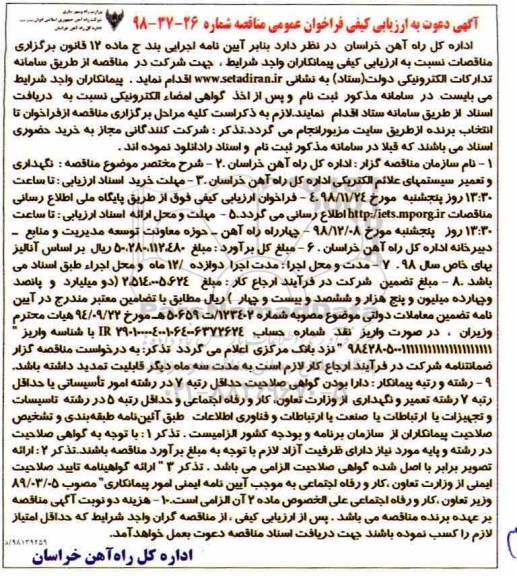 وزارت راه و شهر سازی
شرکت راه آهن جمهوری اسلامی ایران
اداره کل راه آهن خراسان
آگهی دعوت به ارزیابی کیفی فراخوان عمومی مناقصه شماره ۲۶-۳۷-۹۸
اداره کل راه آهن خراسان در نظر دارد بنابر آیین نامه اجرایی بند ج ماده ۱۲ قانون برگزاری
مناقصات نسبت به ارزیابی کیفی پیمانکاران واجد شرایط ، جهت شرکت در مناقصه از طریق سامانه
تدارکات الکترونیکی دولت(ستاد) به نشانی www.setadiran.ir اقدام نماید . پیمانکاران واجد شرایط
می بایست در سامانه مذکور ثبت نام و پس از اخذ گواهی امضاء الکترونیکی نسبت به دریافت
اسناد از طریق سامانه ستاد اقدام نمایند.لازم به ذکر است کلیه مراحل برگزاری مناقصه از فراخوان تا
انتخاب برنده از طریق سایت مزبور انجام می گردد.تذکر : شرکت کنندگانی مجاز به خرید حضوری
اسناد می باشند که قبلا در سامانه مذکور ثبت نام و اسناد را دانلود نموده اند .
۱- نام سازمان مناقصه گزار : اداره کل راه آهن خراسان .۲- شرح مختصر موضوع مناقصه : نگهداری
و تعمیر سیستمهای علائم الکتریکی اداره کل راه آهن خراسان .۳- مهلت خرید اسناد ارزیابی : تا ساعت
۱۳:۳۰ روز پنجشنبه مورخ ۹۸/۱۱/۲۴ .۴- فراخوان ارزیابی کیفی فوق از طریق پایگاه ملی اطلاع رسانی
مناقصات http://iets.mporg.ir اطلاع رسانی می گردد.۵- مهلت و محل ارائه اسناد ارزیابی : تا ساعت
۱۳:۳۰ روز پنجشنبه مورخ ۹۸/۱۲/۰۸ - چهارراه راه آهن - حوزه معاونت توسعه مدیریت و منابع -
دبیرخانه اداره کل راه آهن خراسان . ۶- مبلغ کل برآورد : مبلغ ۵۰،۲۸۰،۱۱۲،۴۸۰ ریال بر اساس آنالیز
بهای خاص سال ۹۸ . ۷- مدت و محل اجرا : مدت اجرا دوازده /۱۲ ماه و محل اجراء طبق اسناد می
باشد .۸- مبلغ تضمین شرکت در فرآیند ارجاع کار : مبلغ ۲،۵۱۴،۰۰۵،۶۲۴ (دو میلیارد و پانصد
وچهارده میلیون و پنج هزار و ششصد و بیست و چهار ) ریال مطابق با تضامین معتبر مندرج در آیین
نامه تضمین معاملات دولتی موضوع مصوبه شماره ۱۲۳۴۰۲/ت۵۰۶۵۹هـ مورخ ۹۴/۰۹/۲۲ هیات محترم
وزیران ، در صورت واریز نقد شماره حساب IR با شناسه واریز "
" نزد بانک مرکزی اعلام می گردد تذکر: به درخواست مناقصه گزار
ضمانتنامه شرکت در فرآیند ارجاع کار لازم است به مدت سه ماه دیگر قابلیت تمدید داشته باشد.
۹- رشته و رتبه پیمانکار : دارا بودن گواهی صلاحیت حداقل رتبه ۷ در رشته امور تأسیساتی یا حداقل
رتبه ۷ رشته تعمیر و نگهداری از وزارت تعاون ،کار و رفاه اجتماعی و حداقل رتبه ۵ در رشته تاسیسات
و تجهیزات یا ارتباطات یا صنعت یا ارتباطات و فناوری اطلاعات طبق آئین‌نامه طبقه‌بندی و تشخیص
صلاحیت پیمانکاران از سازمان برنامه و بودجه کشور الزامیست . تذکر ۱ : با توجه به گواهی صلاحیت
در رشته و پایه مورد نیاز دارای ظرفیت آزاد لازم با توجه به مبلغ برآورد مناقصه باشند.تذکر ۲ : ارائه
تصویر برابر با اصل شده گواهی صلاحیت الزامی می باشد . تذکر ۳ " ارائه گواهینامه تایید صلاحیت
ایمنی از وزارت تعاون ،کار و رفاه اجتماعی به موجب آیین نامه ایمنی امور پیمانکاری" مصوب ۸۹/۰۳/۰۵
وزیر تعاون ،کار و رفاه اجتماعی علی الخصوص ماده ۲ آن الزامی است.۱۰- هزینه دو نوبت آگهی مناقصه
بر عهده برنده مناقصه می باشد . پس از ارزیابی کیفی ، از مناقصه گران واجد شرایط که حداقل امتیاز
لازم را کسب نموده باشند جهت دریافت اسناد مناقصه دعوت بعمل خواهد آمد.
۹۸۱۳۹۲۵۹/م
اداره کل راه‌آهن خراسان